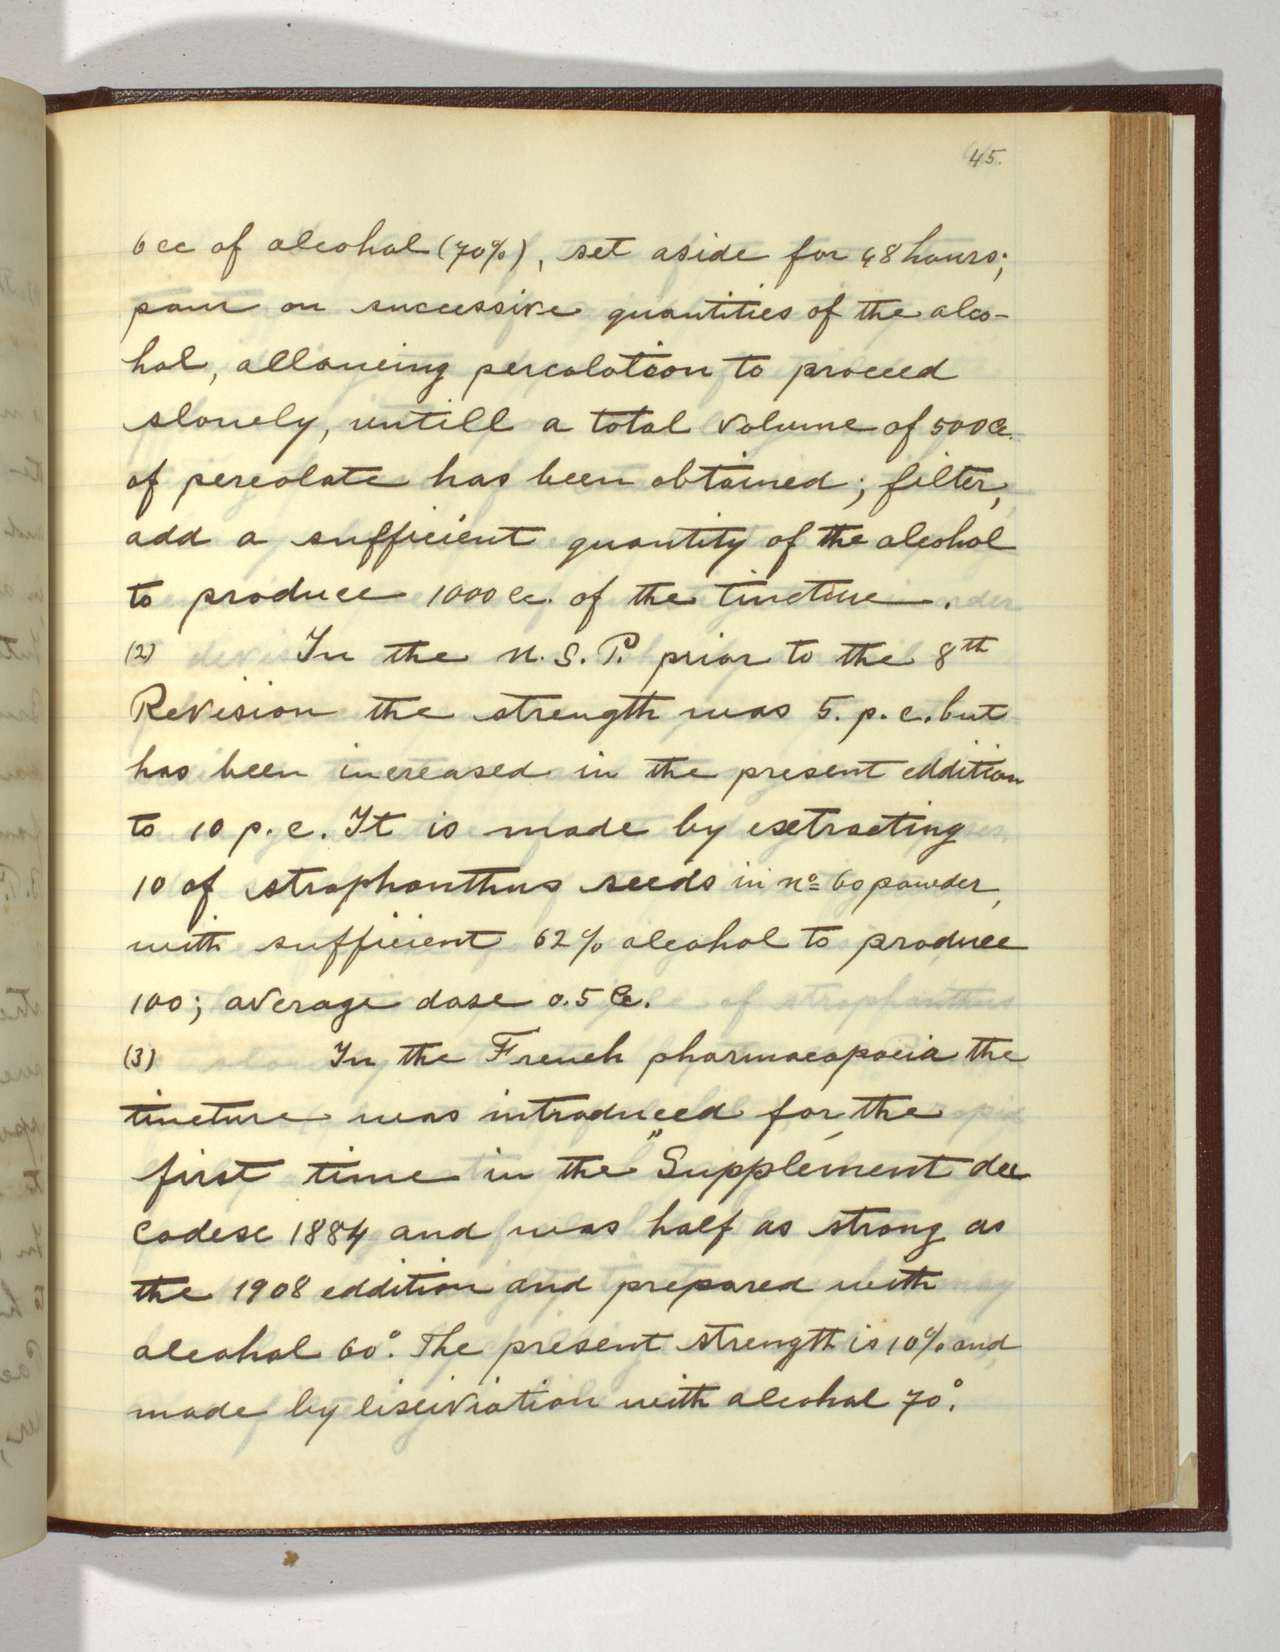 45.
6 cc of alcohol (70%), set aside for 48 hours;
pour on successive quantities of the alco-
hol, allowing percolation to proceed
slowly, untill a total volume of 500 Cc.
of percolate has been obtained; filter,
add a sufficient quantity of the alcohol
to produce 1000 Cc. of the tincture.
(2) In the U.S.P. prior to the 8th
Revision the strength was 5. p. c. but
has been increased in the present eddition
to 10 p. c. It is made by extracting
10 of strophanthus seeds in No 60 powder,
with sufficient 62% alcohol to produce
100; average dose 0.5 Cc.
(3) In the French pharmacopoeia the
tincture was introduced for the
first time in the "Supplément du
Codese 1884 and was half as strong as
the 1908 eddition and prepared with
alcohol 60°. The present strength is 10% and
made by lixiviation with alcohol 70°.